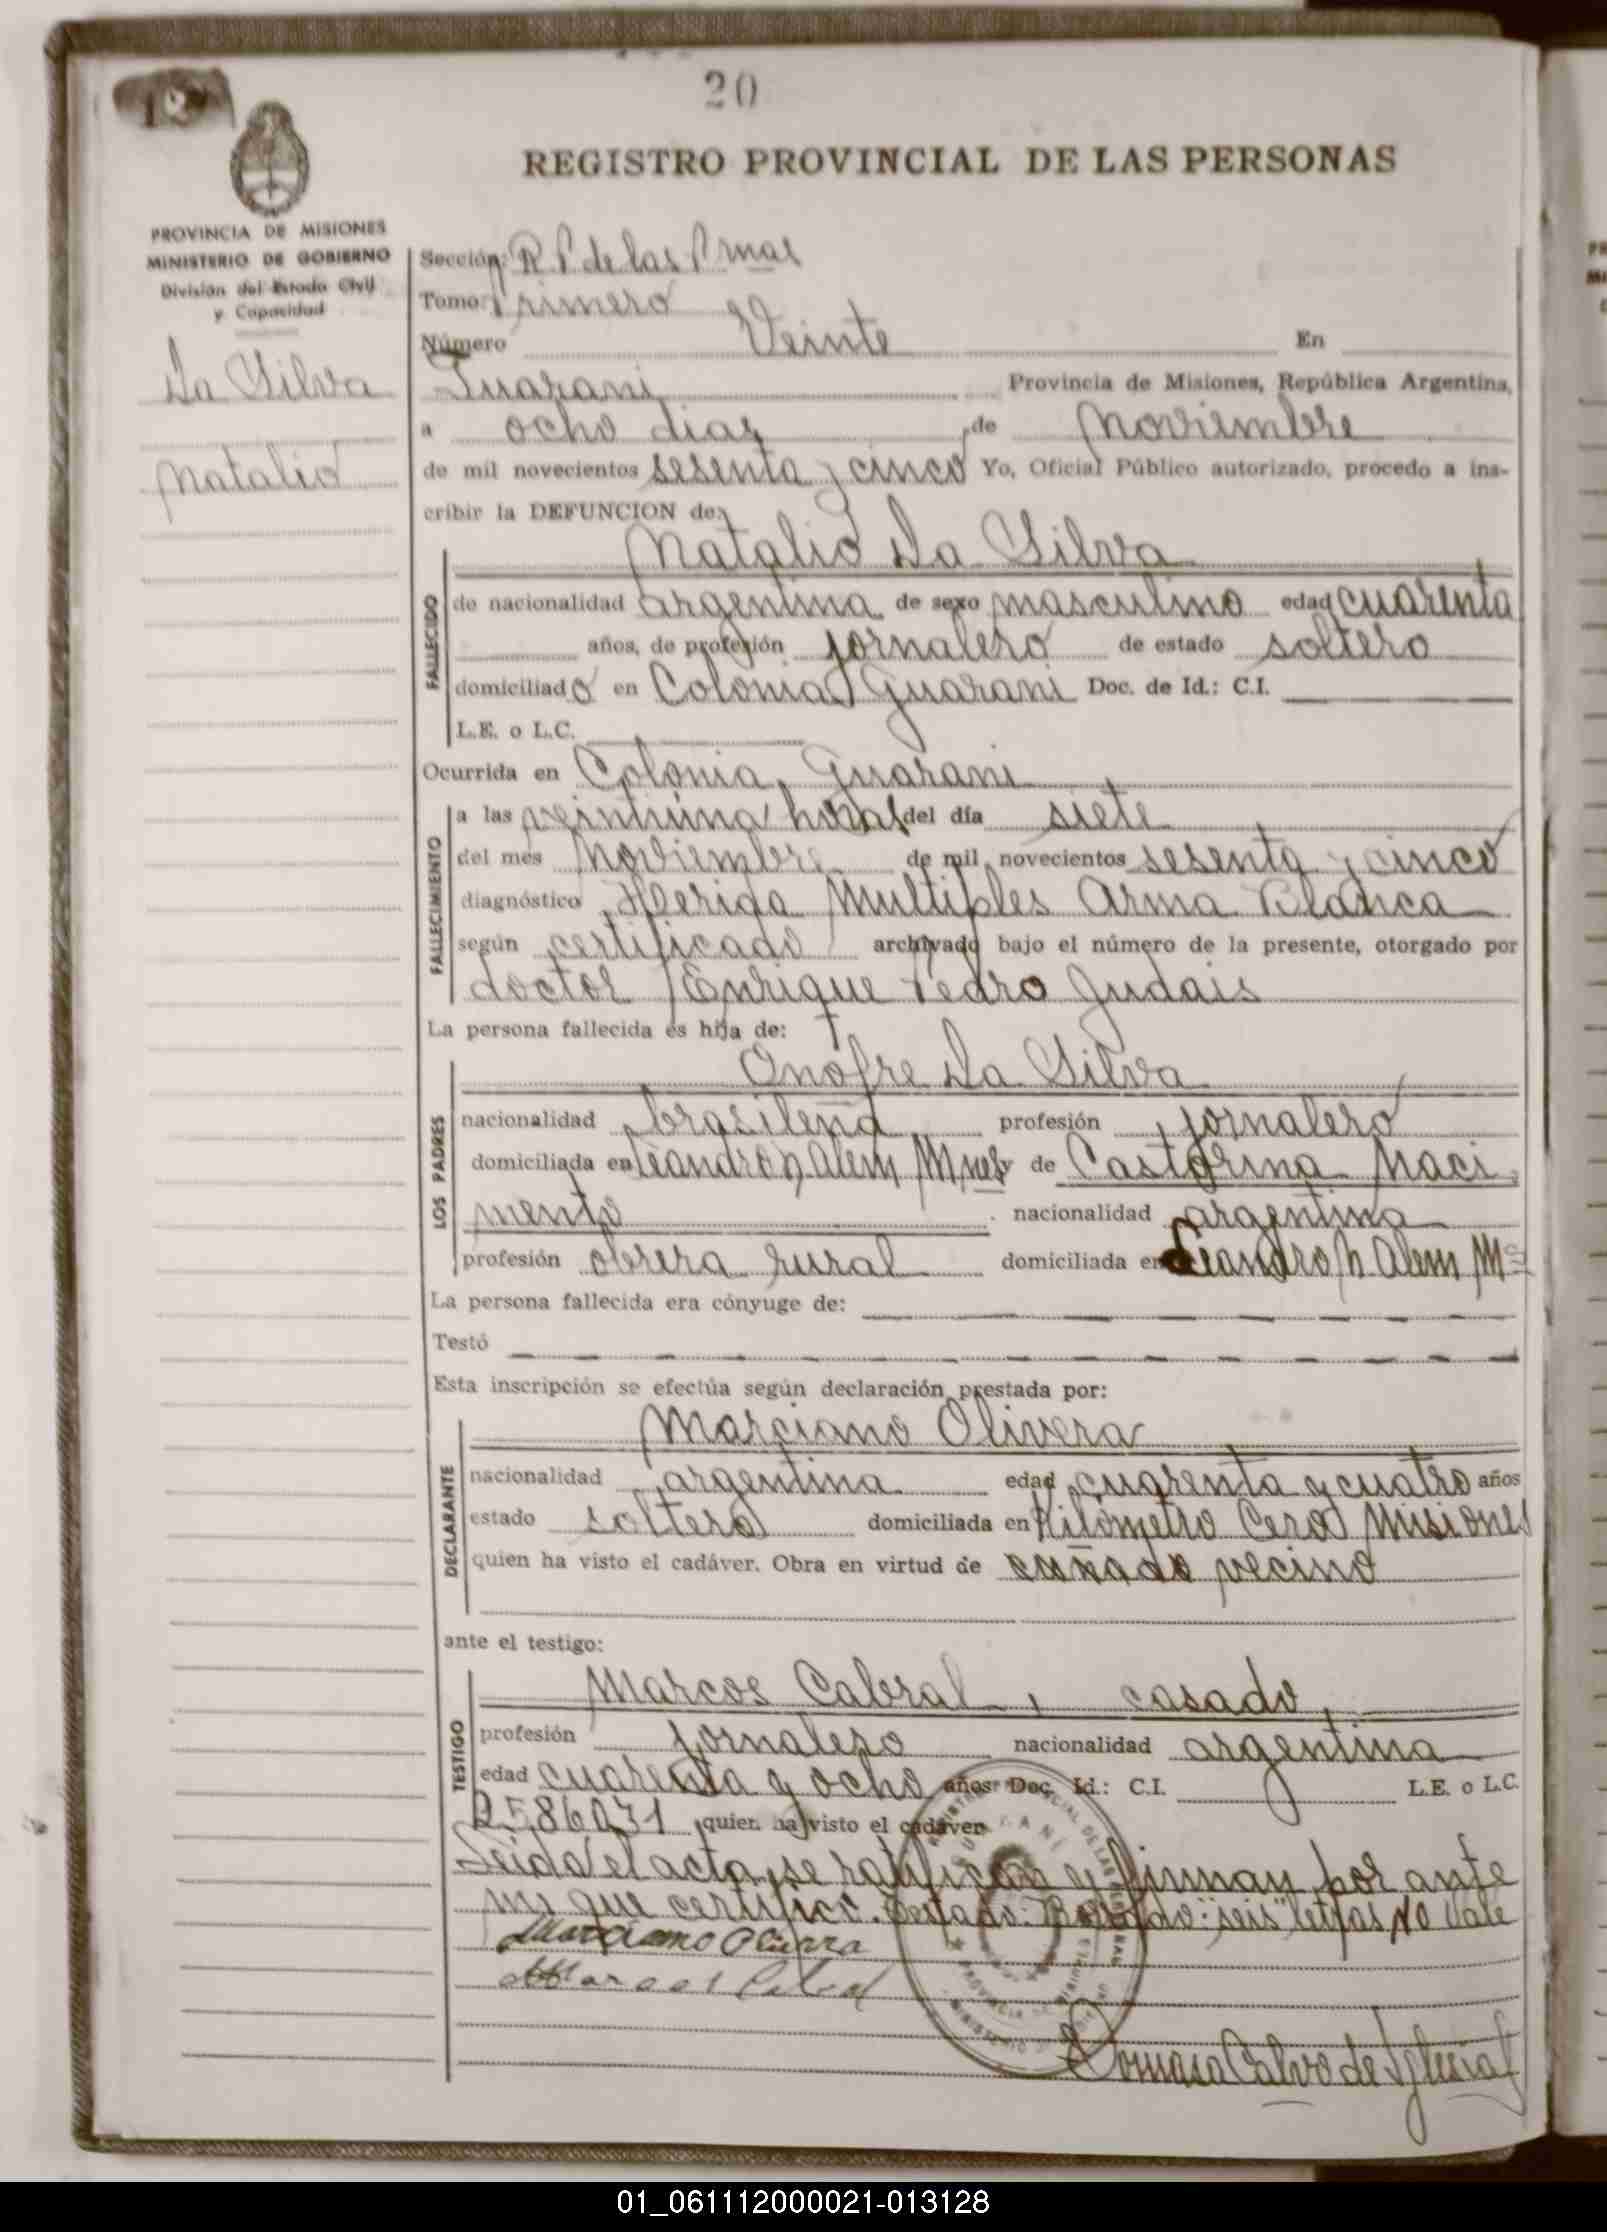 20
19
REGISTRO PROVINCIAL DE LAS PERSONAS
PROVINCIA DE MISIONES
MINISTERIO DE GOBIERNO
División del Estado Civil
y Capacidad
Da Silva
Natalio
Sección: R. P de las Prnas
Tomo: Primero
Número Veinte En
Guarani Provincia de Misiones, República Argentina,
a ocho dias de Noviembre
de mil novecientos sesenta y cinco Yo, Oficial Público autorizado, procedo a ins-
cribir la DEFUNCION de:
Natalio Da Silva
FALLECIDO
de nacionalidad argentina de sexo masculino edad cuarenta
años, de profesión jornalero de estado soltero
domiciliado en Colonia Guarani Doc. de Id.: C.I.
L.E. o L.C.
Ocurrida en Colonia Guarani
FALLECIMIENTO
a las veintiuna horas del día siete
del mes Noviembre de mil novecientos sesenta y cinco
diagnóstico Herida Multiples Arma Blanca
según certificado archivado bajo el número de la presente, otorgado por
doctor Enrique Pedro Judais
La persona fallecida es hija de:
Onofre Da Silva
LOS PADRES
nacionalidad brasileña profesión jornalero
domiciliada en Leandro N Alem Mnes y de Castorina Naci
mento nacionalidad argentina
profesión obrera rural domiciliada en Leandro N Alem Ms
La persona fallecida era cónyuge de:
Testó
Esta inscripción se efectúa según declaración prestada por:
Marciano Olivera
DECLARANTE
nacionalidad argentina edad cuarenta y cuatro años
estado soltero domiciliada en Kilometro Cero Misiones
quien ha visto el cadáver. Obra en virtud de cuñado vecino
ante el testigo:
Marcos Cabral, casado,
TESTIGO
profesión jornalero nacionalidad argentina
edad cuarenta y ocho años: Doc. Id.: C.I. L.E. o L.C.
2586031 quien ha visto el cadáver
Leida el acta, se ratifican y firman por ante
mi que certifico. Testado: seis letras No Vale
Marciano Olivera
Marcos Cabral
Tomasa Calvo de Iglesias
01_061112000021-013128